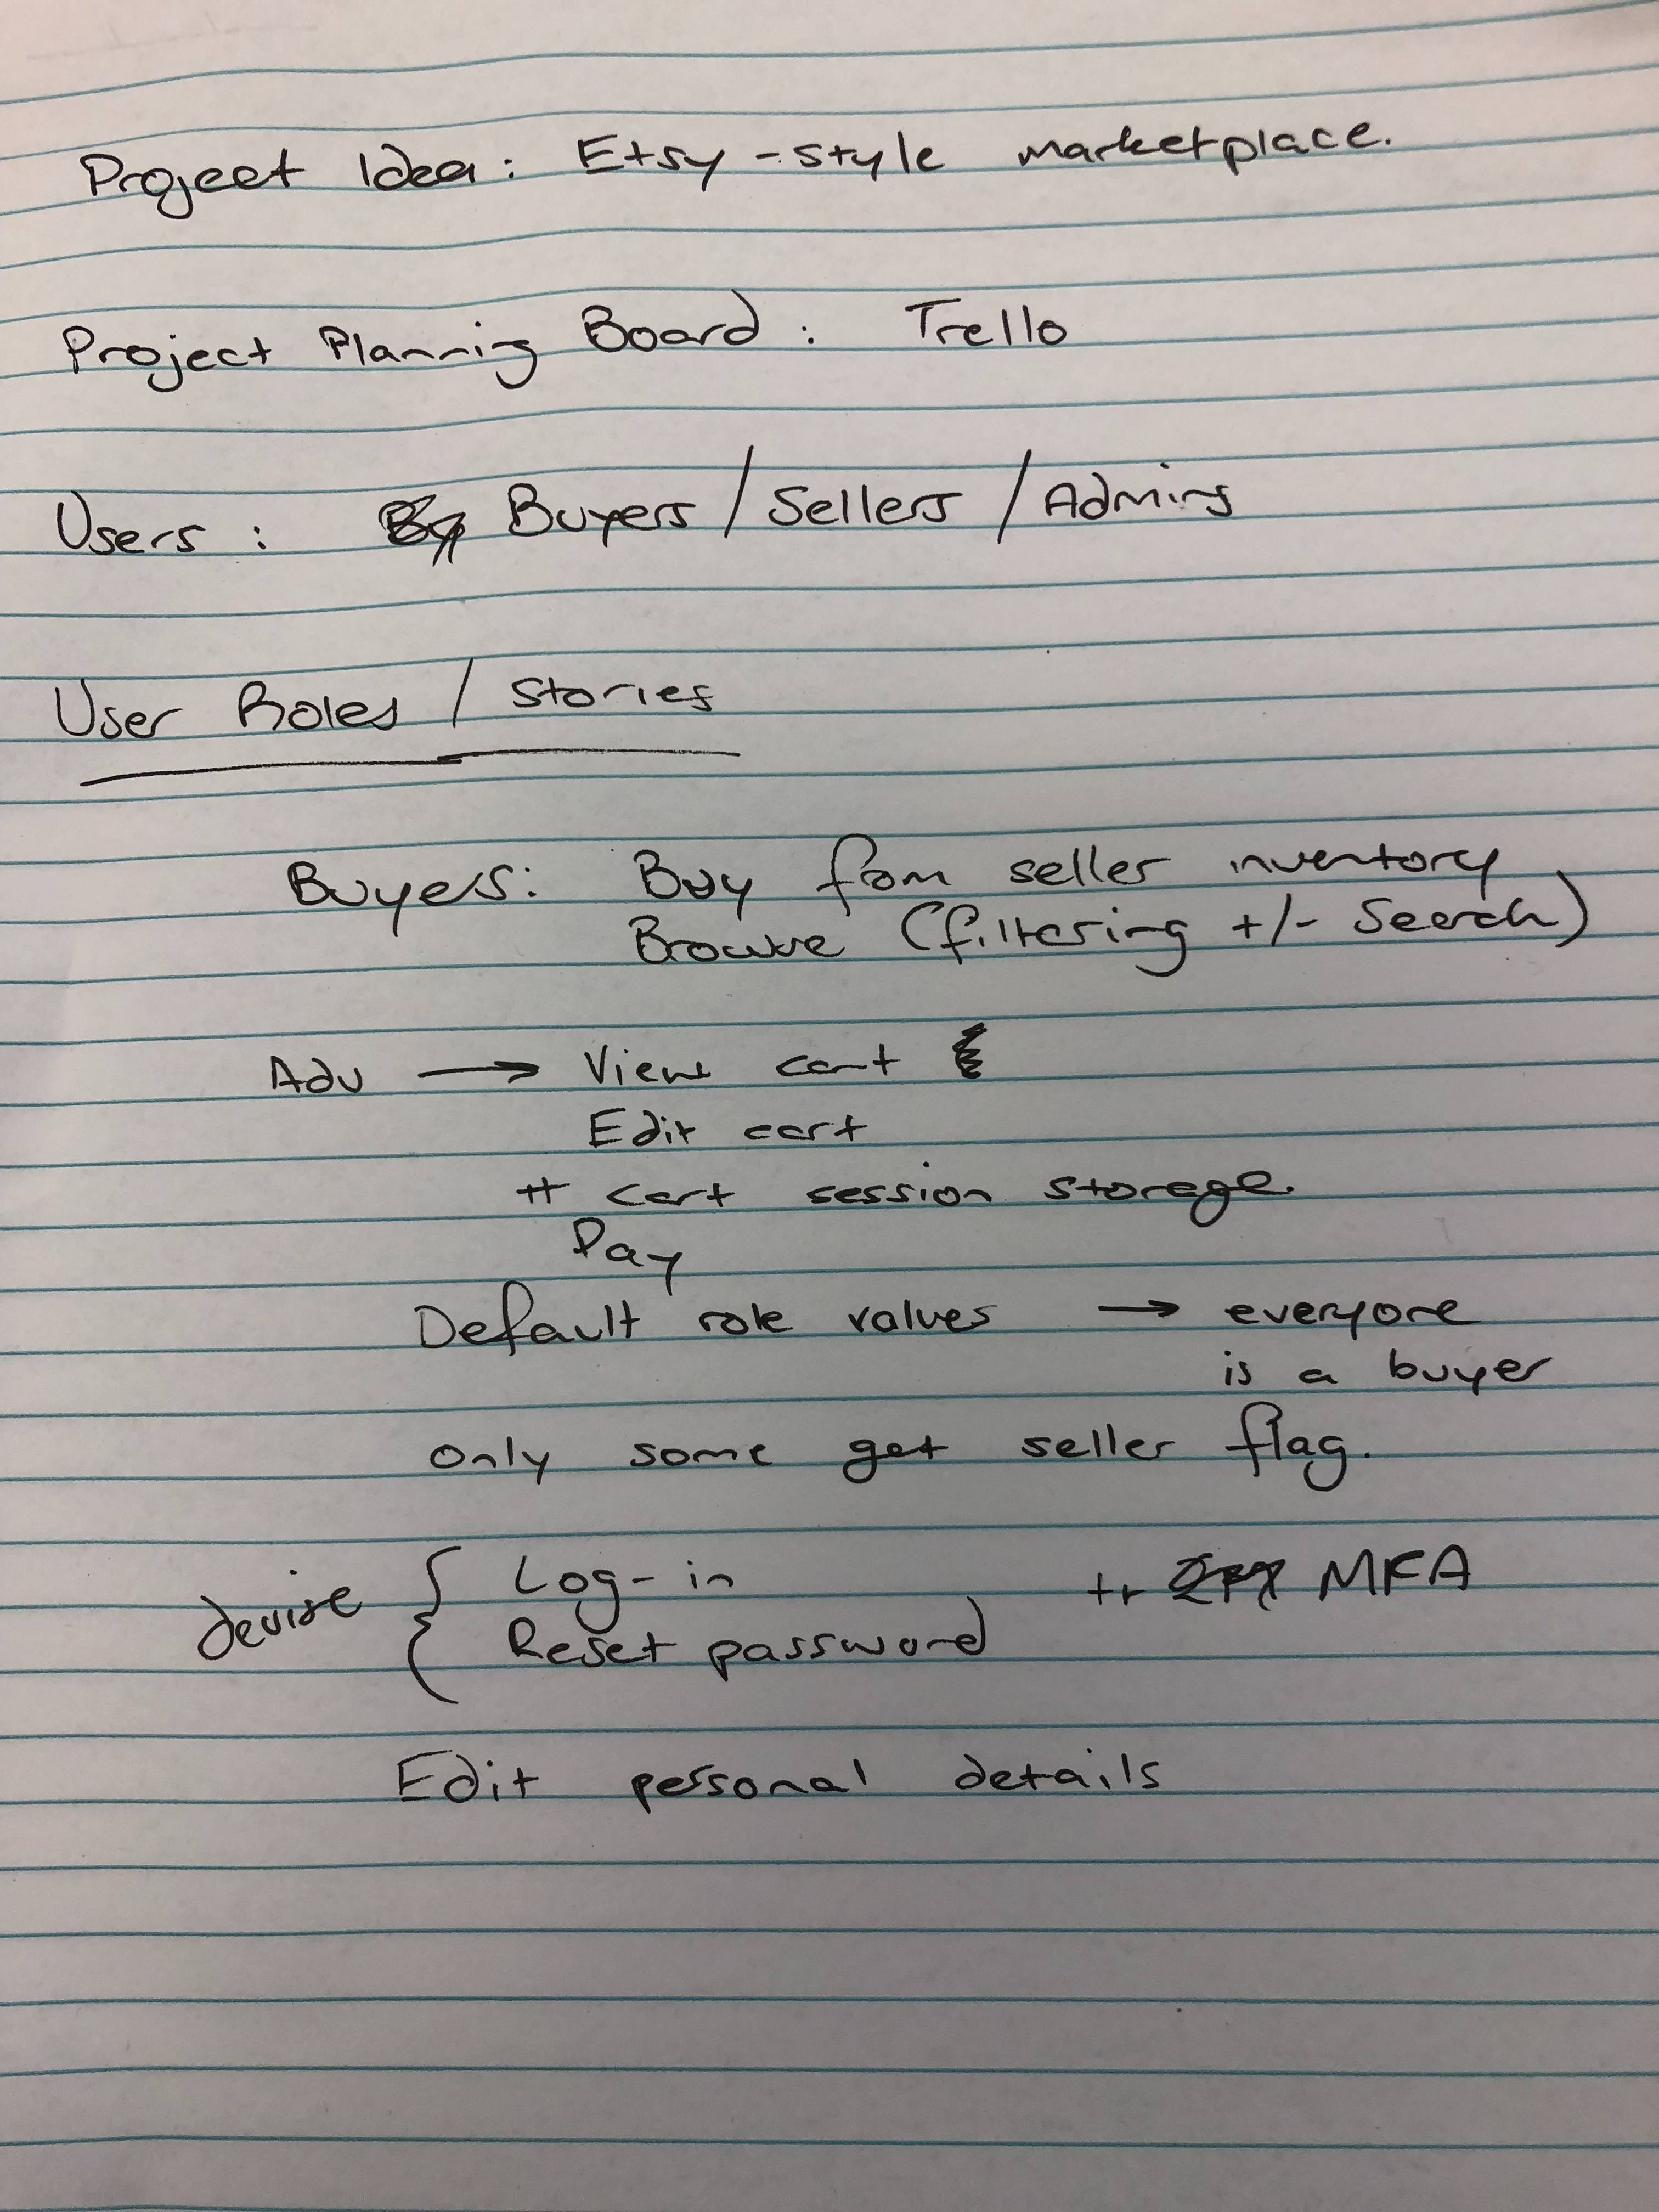 Project Idea: Etsy-style marketplace.
Project Planning Board: Trello
Users: Buyers / Sellers / Admins
User Roles / Stories
Buyers: Buy from seller inventory
Browse (filtering +/- Search)
Adv → View cart
Edit cart
# cart session storage.
Pay
Default role values → everyone
is a buyer
only some get seller flag.
devise { Log-in MFA
Reset password
Edit personal details